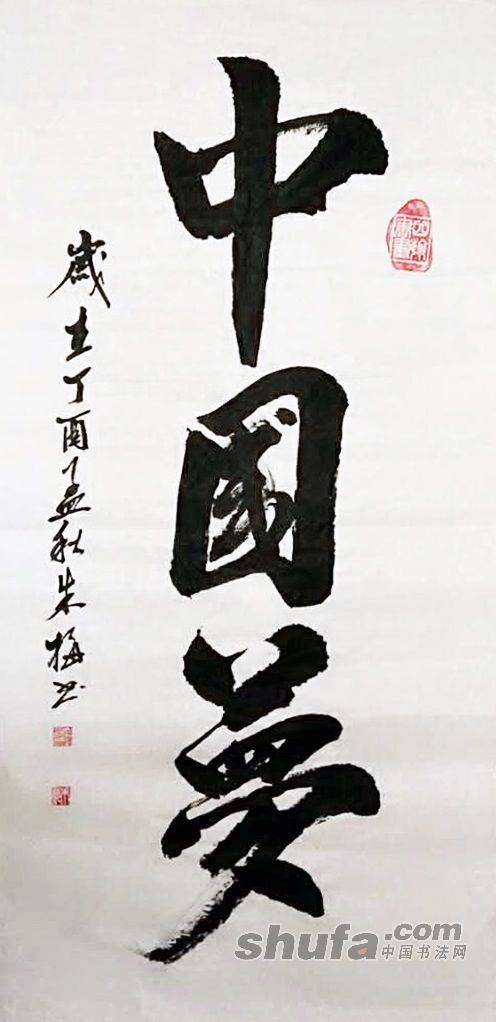 中國夢
歲在丁酉孟秋朱梅书
shufa.com
中国书法网